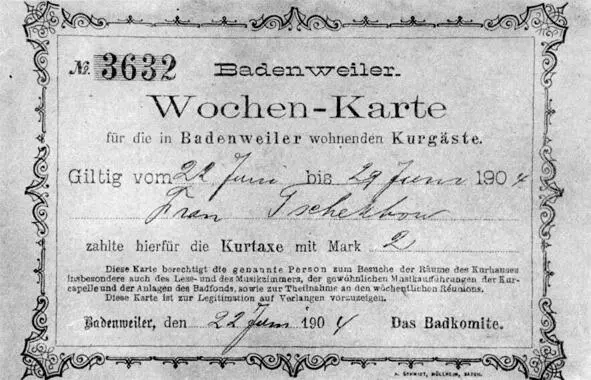 № 3632 Badenweiler.
Wochen-Karte
für die in Badenweiler wohnenden Kurgäste.
Giltig vom 22 Juni bis 29 Juni 1904
Frau Tschekhow
zahlte hierfür die Kurtaxe mit Mark 2
Diese Karte berechtigt die genannte Person zum Besuche der Räume des Kurhauses
insbesondere auch des Lese- und des Musikzimmers, der gewöhnlichen Musikaufführungen der Kur-
capelle und der Anlagen des Badfonds, sowie zur Theilnahme an den wöchentlichen Réunions.
Diese Karte ist zur Legitimation auf Verlangen vorzuzeigen.
Badenweiler, den 22 Juni 1904 Das Badkomite.
A. SCHMIDT, MÜLLHEIM, BADEN.